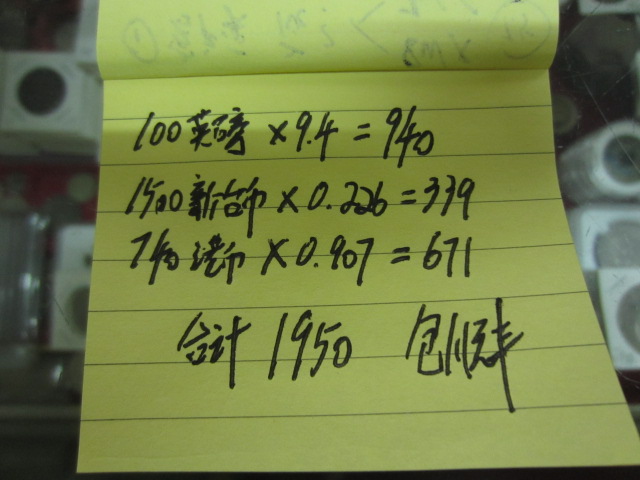 100英磅 × 9.4 = 940
1500新台币 × 0.226 = 339
740港币 × 0.907 = 671
合计 1950 包顺丰